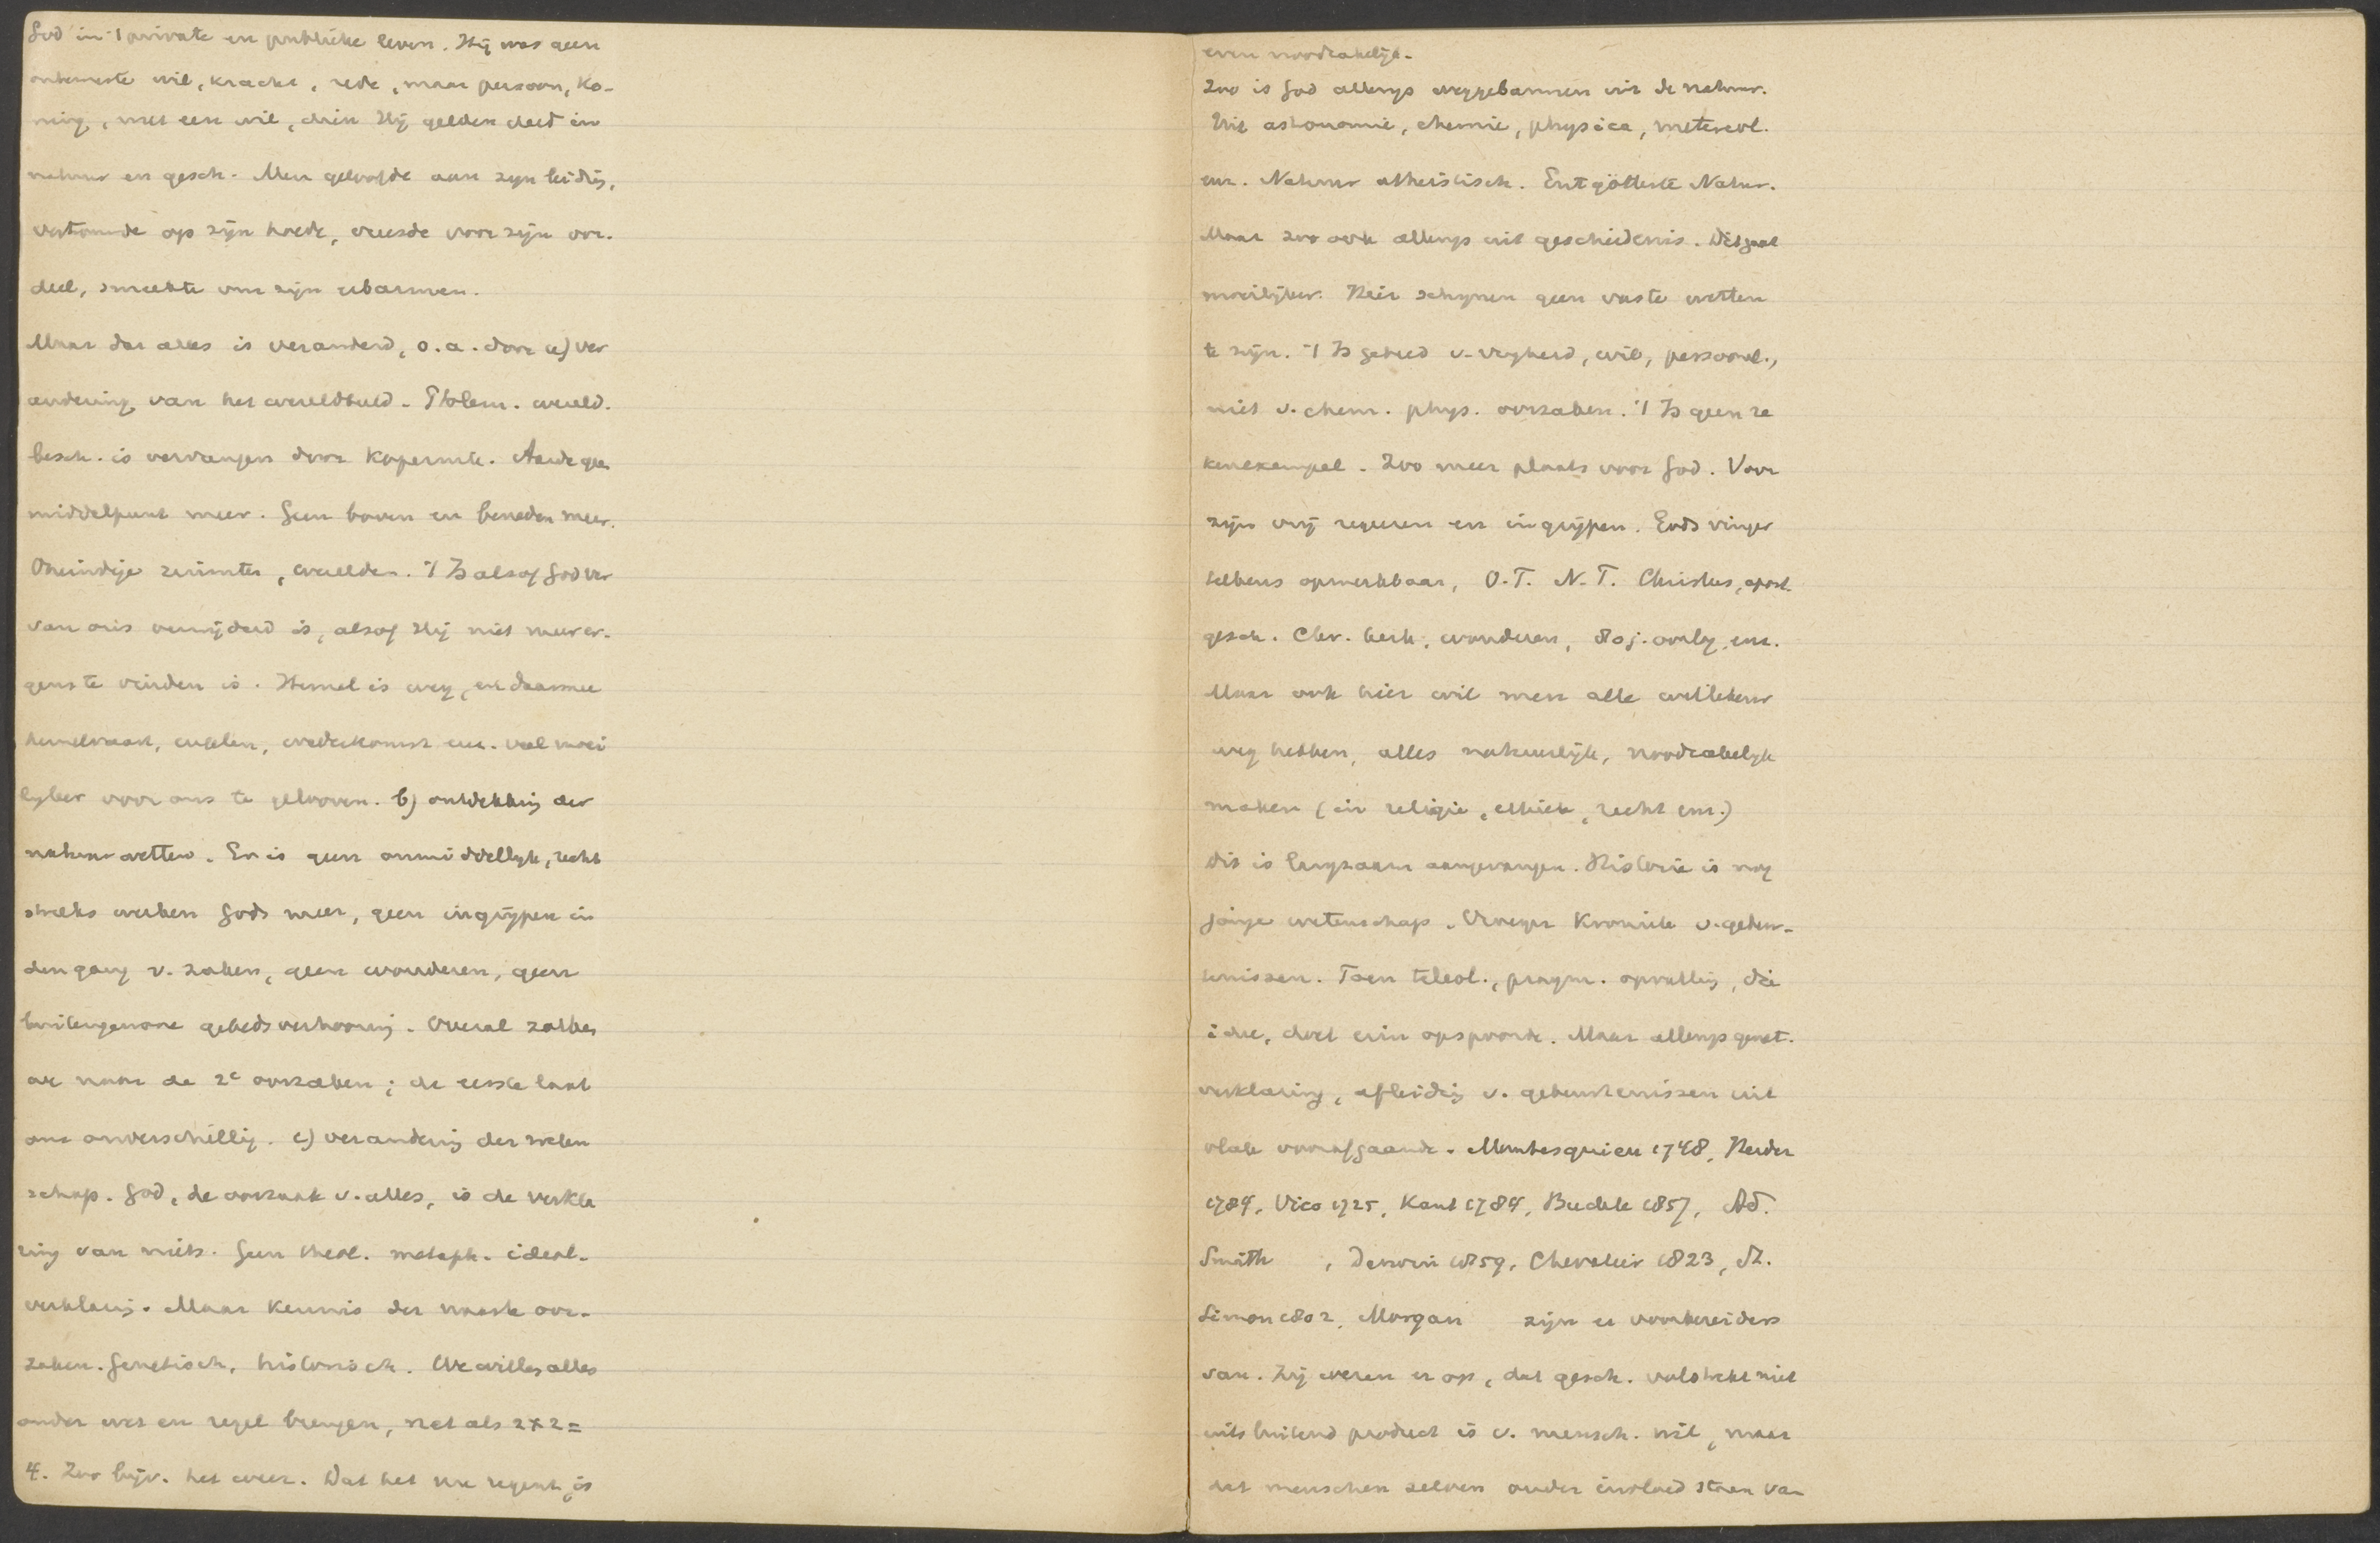 God in 't private en publieke leven. Hij was geen
onbewuste wil, kracht, rede, maar persoon, Ko-
ning, met een wil, dien Hij gelden deed in
natuur en gesch. Men geloofde aan zyn leidig,
vertrouwde op zijn hoede, vreesde voor zijn oor-
deel, smeekte om zijn erbarmen.
Maar dat alles is veranderd, o.a. door a) ver
andering van het wereldbeeld. Ptolem. wereld.
besch. is vervangen door Kopernik. Aarde geen
middelpunt meer. Geen boven en beneden meer.
Oneindige ruimten, werelden. 't Is alsof God ver
van ons verwijderd is, alsof Hij niet meer er-
gens te vinden is. Hemel is weg, en daarmee
hemelvaart, engelen, wederkomst enz. veel moei
lyker voor ons te gelooven. b) ontdekking der
natuurwetten. Er is geen onmiddellyk, recht
streeks werken Gods meer, geen ingrijpen in
den gang v. zaken, geen wonderen, geen
buitengewone gebedsverhooring. Overal zoeken
we naar de 2e oorzaken; de eerste laat
ons onverschillig. c) verandering der weten
schap. God, de oorzaak v. alles, is de verkla
ring van niets. Geen theol. metaph. ideal.
verklaring. Maar kennis der naaste oor-
zaken. Genetisch, historisch. We willen alles
onder wet en regel brengen, net als 2x2=
4. Zoo bijv. het weer. Dat het nu regent, is
even noodzakelijk.
Zoo is God allengs weggebannen uit de natuur.
Uit astronomie, chemie, physica, metereol.
enz. Natuur atheistisch. Entgötterte Natur.
Maar zoo ook allengs uit geschiedenis. Dit gaat
moeilijker. Hier schynen geen vaste wetten
te zijn. 't Is gebied v. vryheid, wil, persoonl.,
niet v. chem. phys. oorzaken. 't Is geen re
kenexempel. Zoo meer plaats voor God. Voor
zijn vrij regeeren en ingrijpen. Gods vinger
telkens opmerkbaar, O.T. N.T. Christus, apost.
gesch. Chr. kerk, wonderen, 80 j. oorlog, enz.
Maar ook hier wil men alle willekeur
weg hebben, alles natuurlijk, noodzakelyk
maken (in religie, ethiek, recht enz.)
Dit is langzaam aangevangen. Historie is nog
jonge wetenschap. Vroeger Kroniek v. gebeur-
tenissen. Toen teleol., pragm. opvatting, die
idee, doel erin opspoorde. Maar allengs genet.
verklaring, afleiding v. gebeurtenissen uit
vlak voorafgaande. Montesquieu 1748, Herder
1784, Vico 1725, Kant 1784, Buckle 1857, Ad.
Smith , Darwin 1859, Chevalier 1823, St.
Simon 1802, Morgan zijn er voorbereiders
van. Zij wezen er op, dat gesch. volstrekt niet
uitsluitend product is v. mensch. wil, maar
dat menschen zelven onder invloed staan van